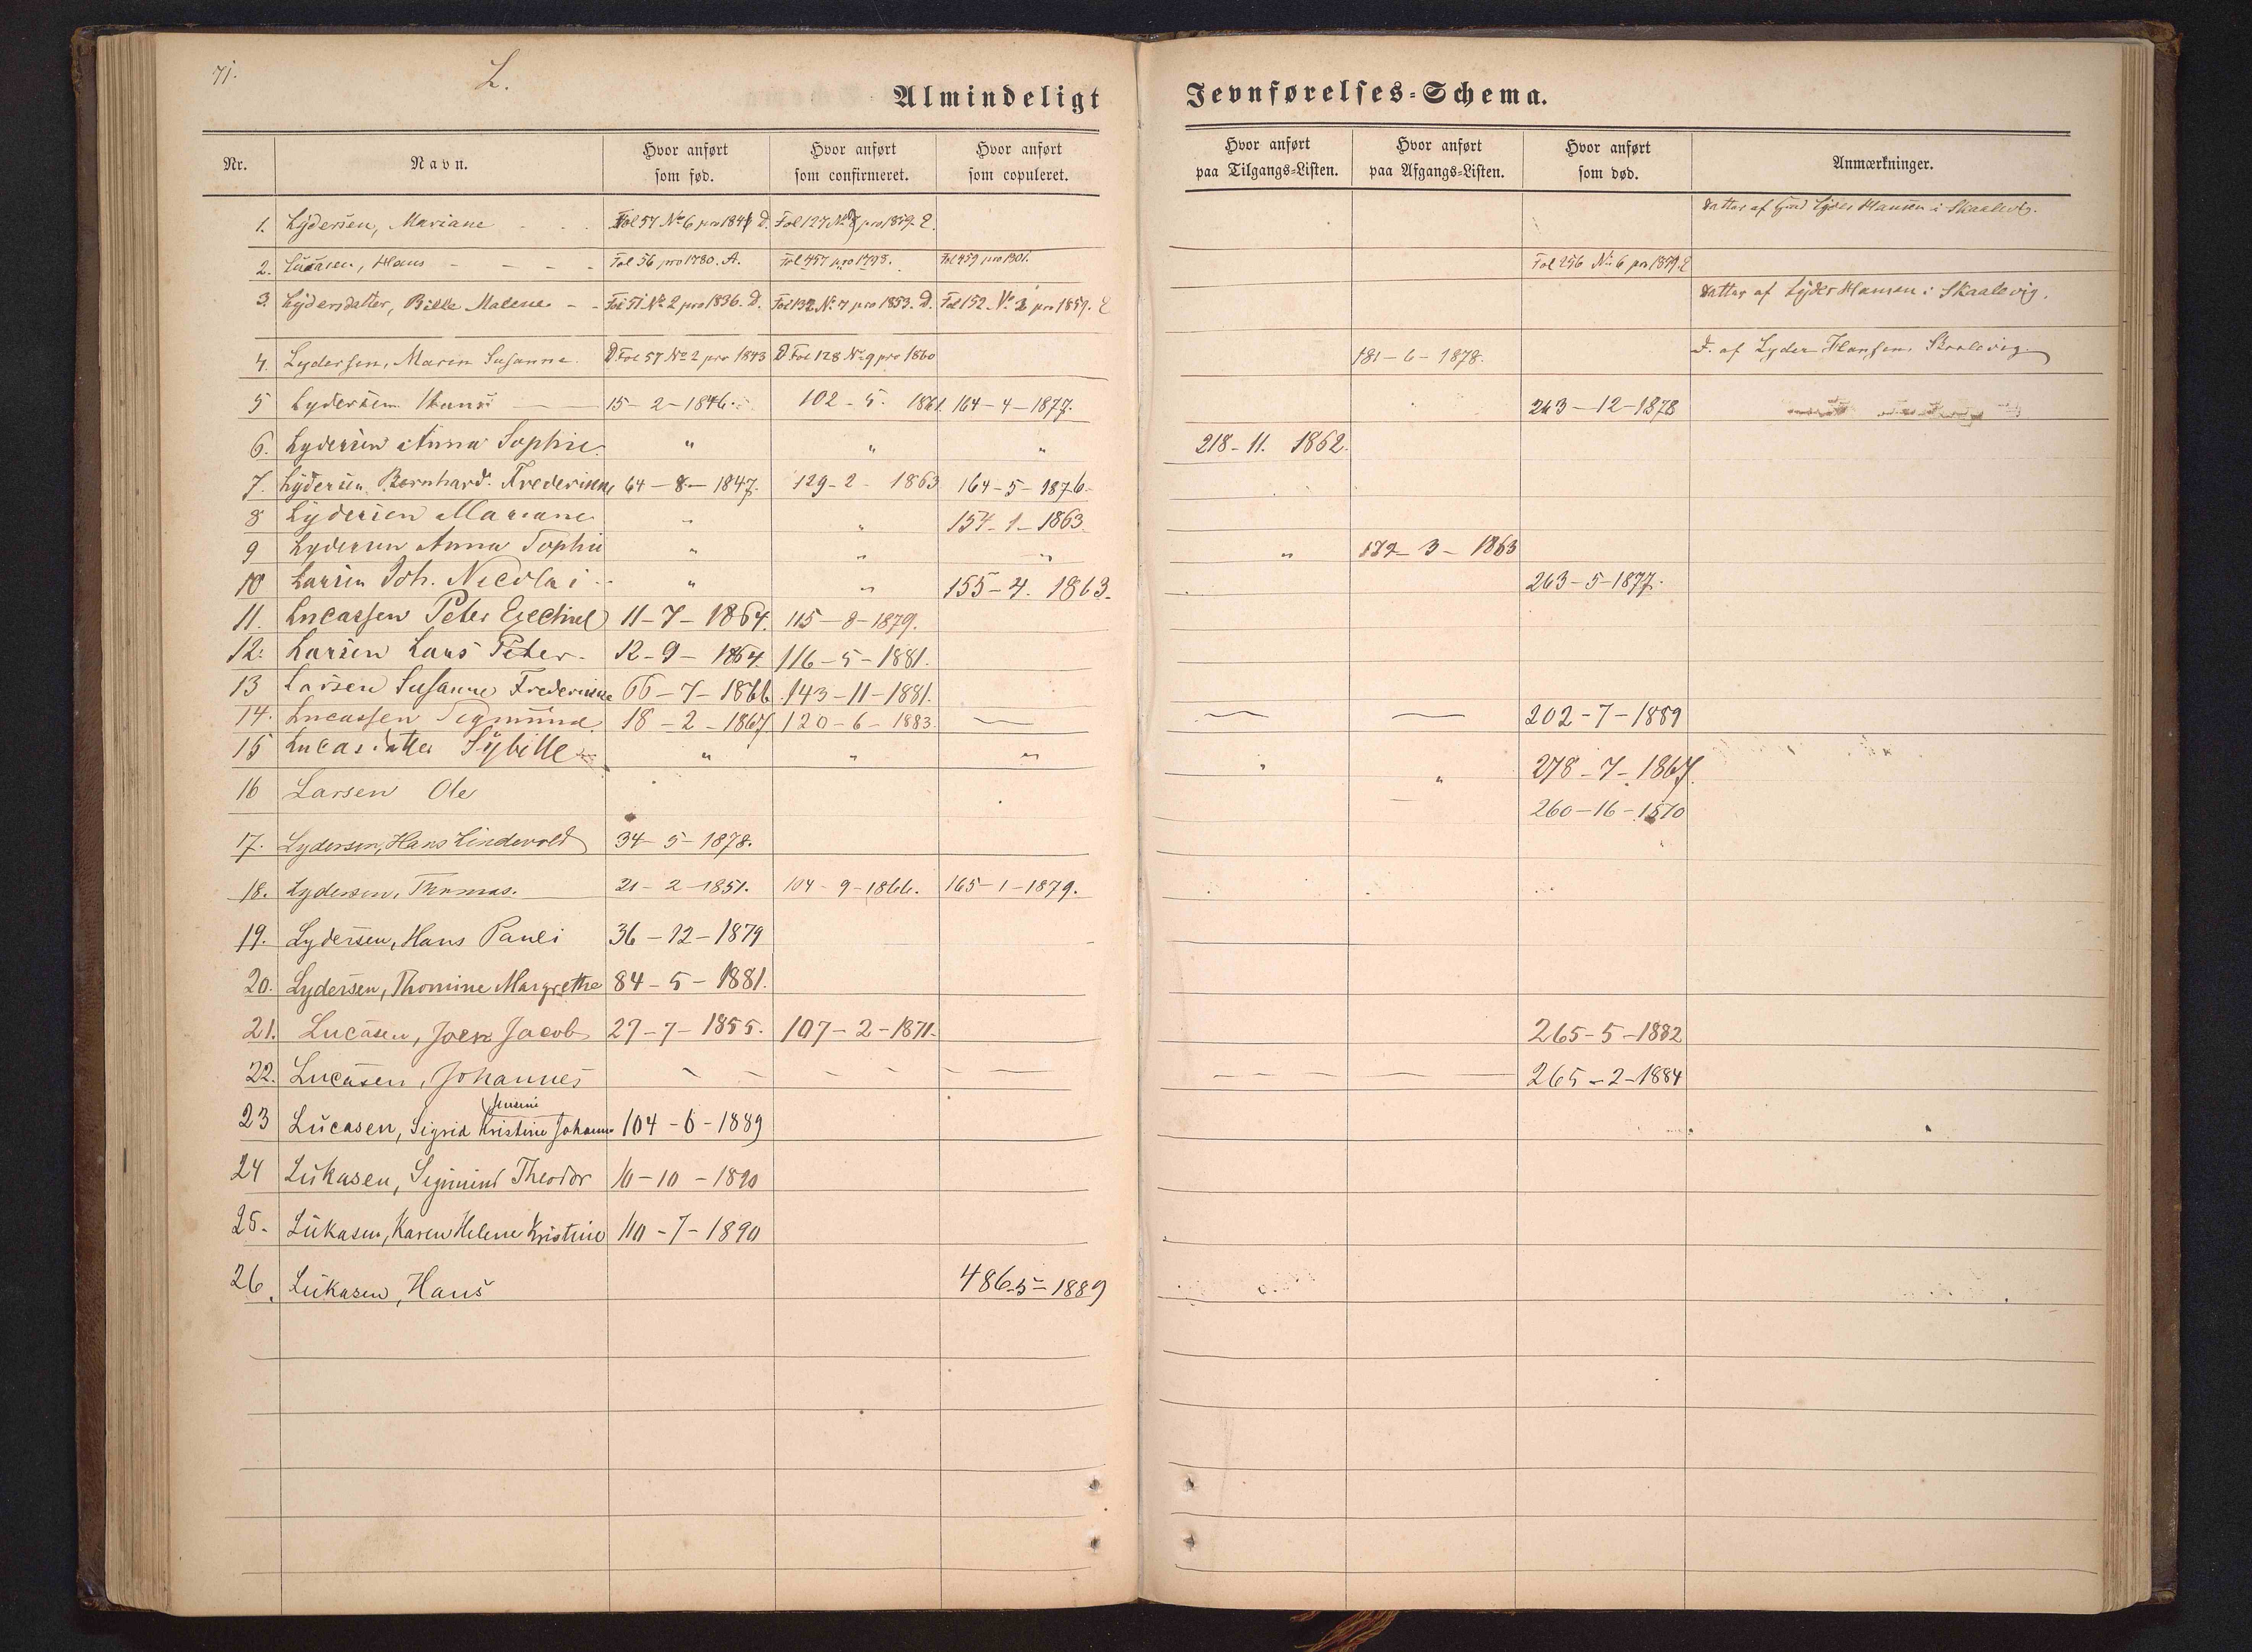 71.
L.
Almindeligt Jevnførelses-Schema.
Nr. Navn. Hvor anført som fød. Hvor anført som confirmeret. Hvor anført som copuleret. Hvor anført paa Tilgangs-Listen. Hvor anført paa Afgangs-Listen. Hvor anført som død. Anmærkninger.
1. Lydersen, Mariane Fol 57 No 6 pro 1841 D. Fol 127 No pro 1859 E. Datter af Lyder Hansen i Skaalevig.
2. Lucasen, Hans - - - - Fol 56 pro 1780. A. Fol 457 pro 1798. Fol 459 pro 1801. Fol 256 No 6 pro 1859 E
3. Lydersdatter, Bille Malene - - Fol 51 No 2 pro 1836. D. Fol 132 No 7 pro 1853. D. Fol 152 No 2 pro 1859. E Datter af Lyder Hansen i Skaalevig.
4. Lydersen, Maren Susanne. D Fol 57 No 2 pro 1843 D Fol 128 No 9 pro 1860 181-6-1878. D. af Lyder Hansen, Skaalevig.
5 Lydersen Hans 15-2-1846. 102-5. 1861. 164-4-1877. 263-12-1878
6. Lydersen Anna Sophie " " " 218-11. 1862.
7. Lydersen Bernhard. Frederikke 64-8-1847. 129-2-1863 164-5-1876.
8 Lydersen Mariane " " 154-1-1863.
9 Lydersen Anna Sophie " " " " 182-3-1863
10 Larsen Joh. Nicolai " " 155-4. 1863. 263-5-1877.
11. Lucassen Peter Ezechiel 11-7-1864. 115-8-1879.
12. Larsen Lars Peter. 12-9-1864. 116-5-1881.
13 Larsen Susanne Frederikke 66-7-1866 143-11-1881.
14. Lucassen Sigmund. 18-2-1867 120-6-1883. — — — 202-7-1889
15 Lucasdatter Sybille " " " " " 278-7-1867.
16 Larsen Ole 260-16-1870
17. Lydersen, Hans Lindevold 34-5-1878.
18. Lydersen, Thomas. 21-2-1851. 104-9-1866. 165-1-1879.
19. Lydersen, Hans Pauli 36-12-1879
20. Lydersen, Thomine Margrethe 84-5-1881.
21. Lucasen, Joen Jacob 27-7-1855. 107-2-1871. 265-5-1882
22. Lucasen, Johannes - - - - - - — - - - — — 265-2-1884
Jensine
23 Lucasen, Sigrid Kristine Johanne 104-6-1889
24 Lukasen, Sigmund Theodor 10-10-1890
25. Lukasen, Karen Helene Kristine 110-7-1890
26. Lukasen, Hans 486-5-1889